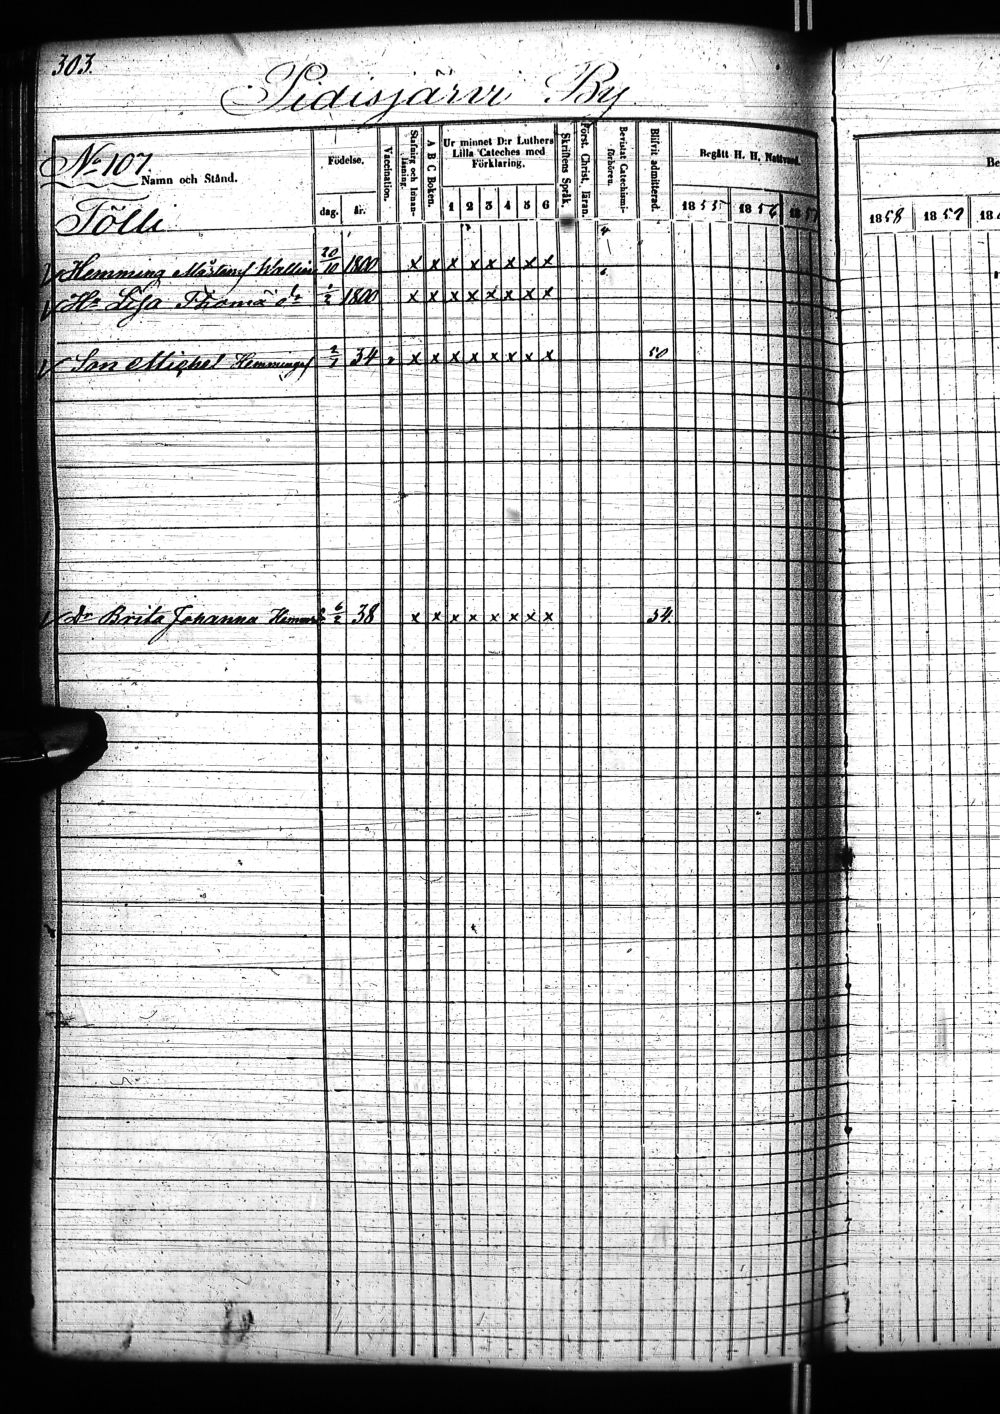 303.
Pidisjärvi By
No 107.
Namn och Stånd.
Födelse.
dag. år.
Vaccination.
Stafning och Innan-läsning.
A B C Boken.
Ur minnet D:r Luthers
Lilla Cateches med
Förklaring.
1 2 3 4 5 6
Skriftens Språk.
Först. Christ. läran.
Bevistat Catechismi-förhören.
Blifvit admitterad.
Begått H. H. Nattvard.
1855 1856 1857
Be
1858 1859 18
Tölli
Hemming Wallin 20/10 1800 x x x x x x x x
Hu Lisa Thomæ dr 1/2 1800 x x x x x x x x
Son Michel Hemmingsf 34 x x x x x x x x 50
Dr Brita Johanna 6/2 38 x x x x x x x x 54.